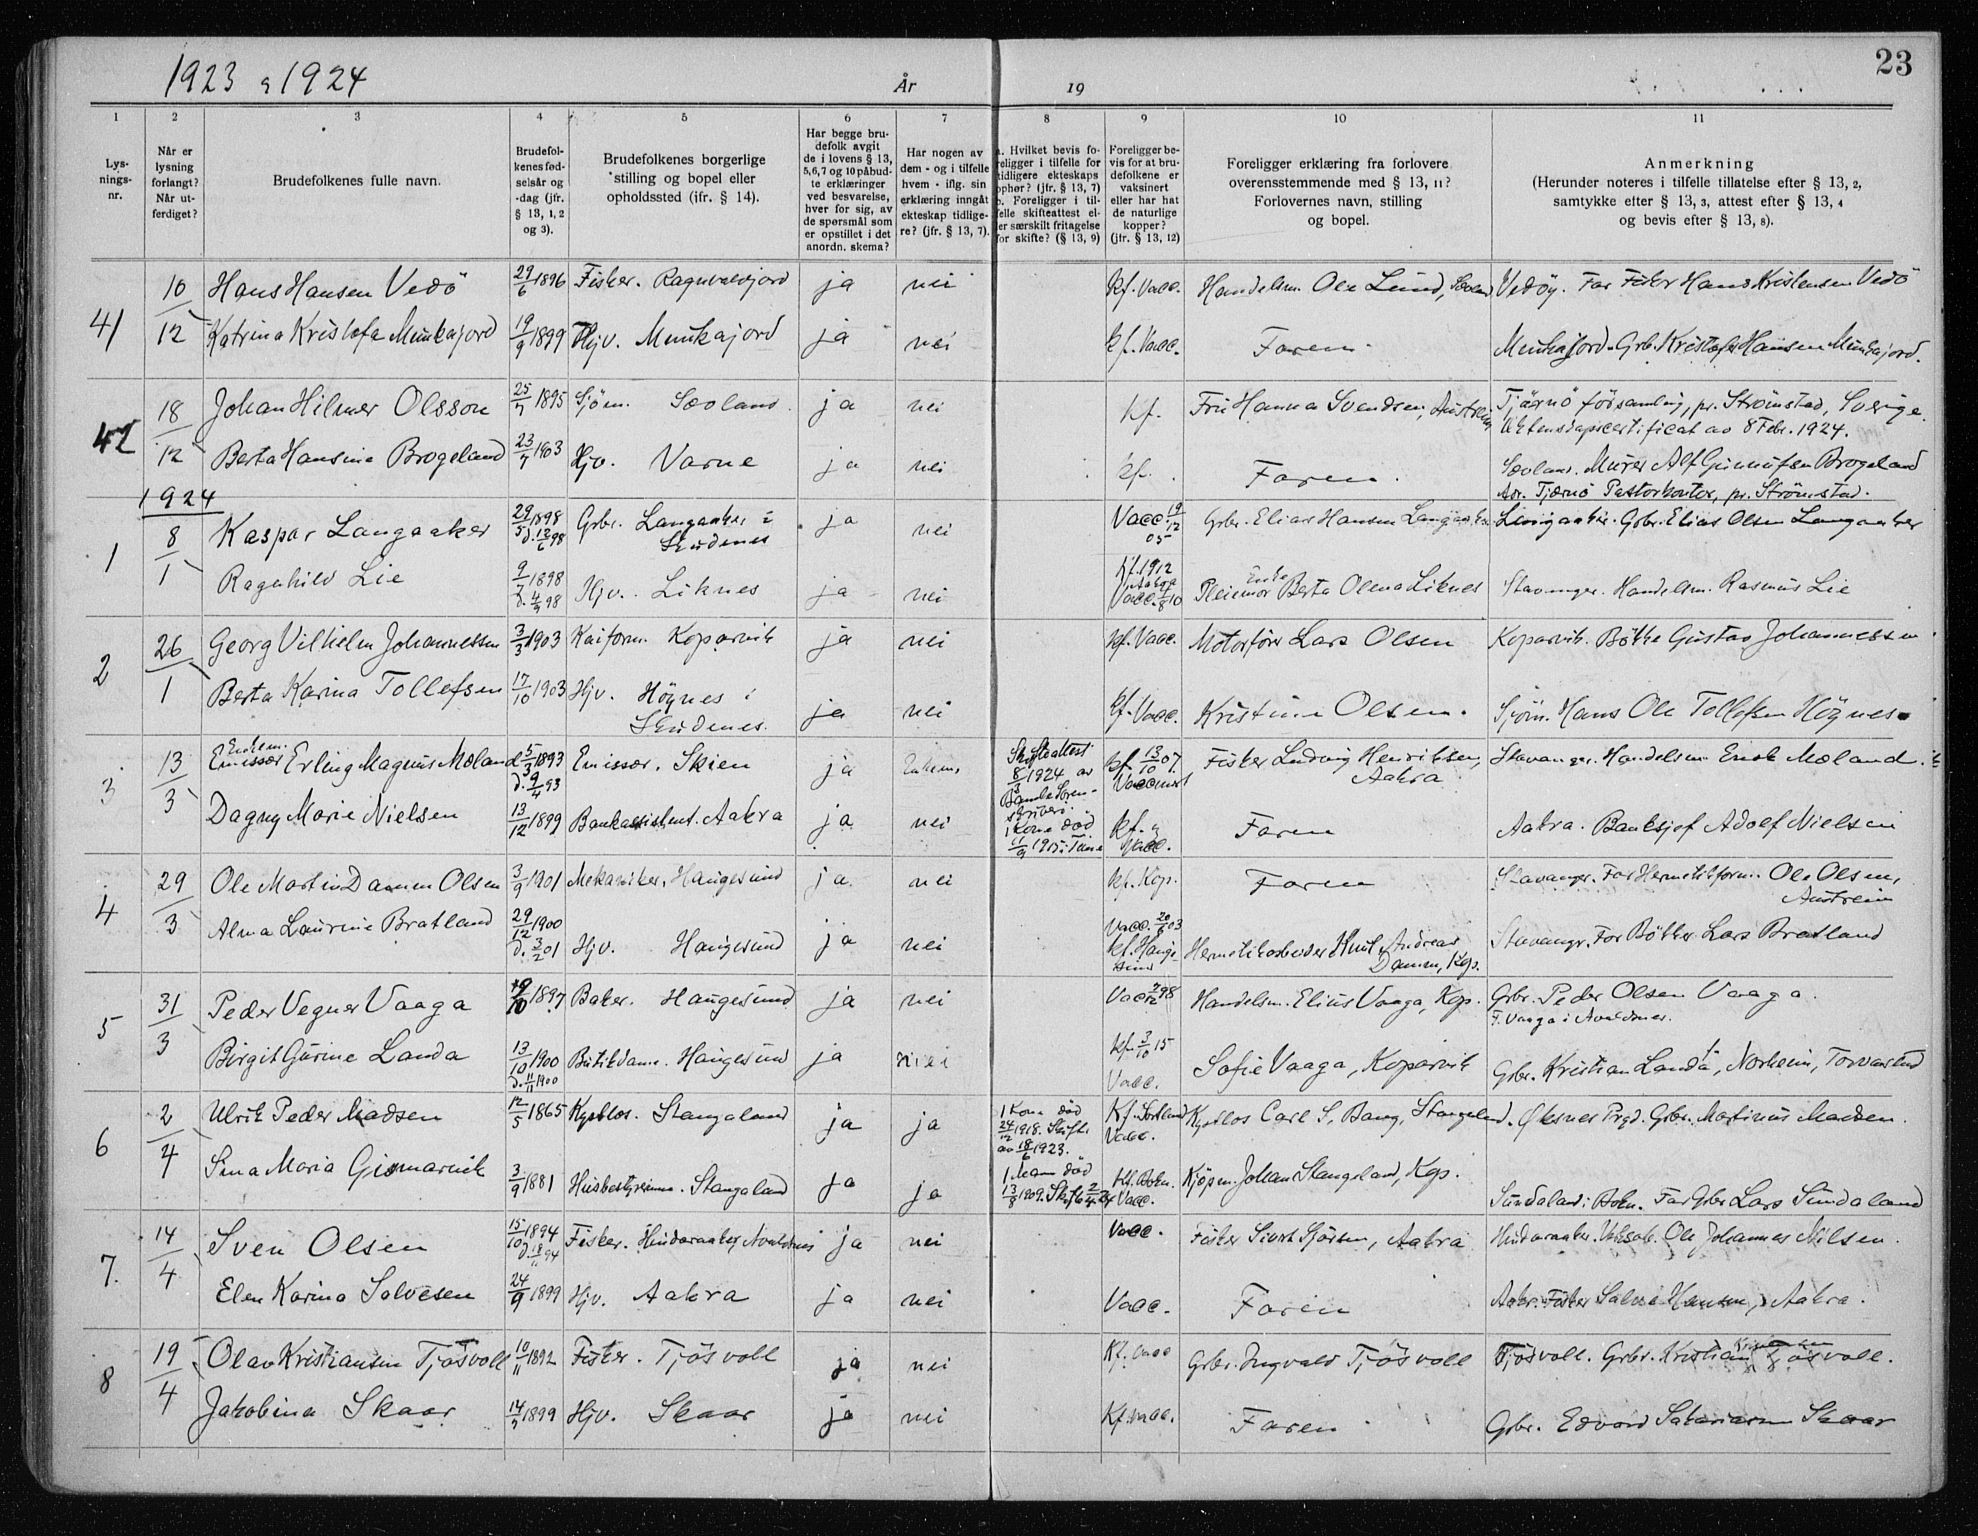 1923 & 1924
År
19
23
1
2
3
4
5
6
7
8
9
10
11
Lys-
nings-
nr.
Når er
lysning
forlangt?
Når ut-
ferdiget?
Brudefolkenes fulle navn.
Brudefol-
kenes fød-
selsår og
-dag (jfr.
§ 13, 1, 2
og 3).
Brudefolkenes borgerlige
stilling og bopel eller
opholdssted (jfr. § 14).
Har begge bru-
defolk avgit
de i lovens § 13,
5,6,7 og 10 påbud-
te erklæringer
ved besvarelse,
hver for sig, av
de spørsmål som
er opstillet i det
anordn. skema?
Har nogen av
dem - og i tilfelle
hvem - iflg. sin
erklæring inngåt
ekteskap tidlige-
re? (jfr. § 13, 7).
a. Hvilket bevis fo-
religger i tilfelle for
tidligere ekteskaps
ophør? (jfr. § 13, 7)
b. Foreligger i til-
felle skifteattest el-
ler særskilt fritagelse
for skifte? (§ 13, 9)
Foreligger be-
vis for at bru-
defolkene er
vaksinert
eller har hat
de naturlige
kopper?
(jfr. § 13, 12)
Foreligger erklæring fra forlovere
overensstemmende med § 13, 11?
Forlovernes navn, stilling
og bopel.
Anmerkning
(Herunder noteres i tilfelle tillatelse efter § 13, 2,
samtykke efter § 13, 3, attest efter § 13, 4
og bevis efter § 13, 8).
41
10/12
Hans Hansen Vedö 29/6 1896 Fisker. Ragnvaldjord ja nei kf. Vacc. Handelsm. Ole Lund, Vedöy. Far Fisker Hans Kristensen Vedö
Katrina Kristofa Munkajord 19/9 1899 Hjv. Munkajord ja nei kf. Vacc. Faren. Munkajord. Grb. Kristofer Hansen Munkajord.
42
18/12
Johan Hilmer Olsson 25/7 1895 Sjöm. Sæoland. ja nei kf. Fru Hanna Svendsen, Austreim Tjärnö församling, pr. Strömstad, Sverige.
Äktenskapscertificat av 8 Febr. 1924.
Berta Hansine Brogeland 23/7 1903 Hjv. Varne ja nei kf. Faren. Sæoland. Murer Alf Gunnufsen Brogeland
Adr. Tjærnö Pastorkontor, pr. Strömstad.
1924
1
8/1
Kaspar Langaaker 29/5 1898 d. 12/6 98 Grbr. Langaaker i Skudenes ja nei Vacc 19/12 05 Grbr. Elias Hansen Langaaker. Grbr. Elias Olsen Langaaker
Ragnhild Lie 9/7 1898 d. 4/9 98 Hjv. Liknes ja nei kf. 1912 Aakra Vacc. 4/8 10 Pleiemor Enke Berta Olena Liknes Stavanger. Handelsm. Rasmus Lie
2
26/1
Georg Vilhelm Johannessen 3/3 1903 Kaiform. Kopervik ja nei kf. Vacc. Motorförer Lars Olsen Kopervik. Bökke Gustav Johannessen.
Berta Karina Tollefsen 17/10 1903 Hjv. Höynes i Skudenes. ja nei kf. Vacc. Kristine Olsen. Sjöm. Hans Ole Tollefsen Högnes
3
13/3
Enkem. Emissær Erling Magnus Mæland 5/3 1893 d. 9/4 93 Emissær. Skien ja Enkem. Skifteattest 8/3 1924 av Bamle Soren-skriveri. kf. 13/10 07. Vaccinert Fisker Ludvig Henriksen, Aakra Stavanger. Handelsm. Enok Mæland.
Dagny Marie Nielsen 13/12 1899 Bankassistent. Aakra ja nei 1 Kone död 11/9 kf. Vacc. Faren Aakra. Banksjef Adolf Nielsen
4
29/3
Ole Martin Damm Olsen 3/9 1901 Mekaniker. Haugesund ja. nei kf. Kop. Faren Stavanger. Far Hermetikform. Ole Olsen, Austreim
Alma Laurine Bratland 29/12 1900 d. 3/2 01 Hjv. Haugesund ja nei Vacc. 20/6 03 kf. Hauge-sund Hermetikarbeider Knut Andreas Damm, Kop. Stavangr. Far Bökker Lars Bratland
5
31/3
Peder Vegner Vaaga 1897 Baker. Haugesund ja nei Vacc 98 Handelsm. Elius Vaaga, Kop. Grbr. Peder Olsen Vaaga.
F. Vaaga i Avaldsnes.
Birgit Gurine Landa 13/10 1900 d. 11/11 1900 Butikdame. Haugesund ja nei kf. 3/10 15 Vacc. Sofie Vaaga, Kopervik Grbr. Kristian Landa, Norheim, Torvastad
6
2/4
Ulrik Peder Madsen 12/5 1865 Kystlos. Stangaland ja ja 1 Kone död 24/12 1918. Skifte av 18/6 1923. Kf. Sortland Vacc. Kystlos Carl S. Bang, Stangeland. Øksnes Prgd. Grbr. Martinus Madsen.
Sina Maria Gismarvik 3/9 1881 Husbestyrerinne. Stangaland ja ja 1. Mann död 13/8 1909. Skifte 2/4 Kf. Bokn. Vacc. Kjöpm. Johan Stangeland, Kop. Sundaland i Bokn. Far Grbr Lars Sundaland
7.
14/4
Sven Olsen 15/10 1894 d. 18/11 94 Fisker. Hinderaaker, Avaldsnes ja nei Vacc. Fisker Sivert Sjörsen, Aakra Hinderaaker. Ole Johannes Nilsen.
Elen Karina Salvesen 24/9 1899 Hjv. Aakra ja nei Vacc. Faren Aakr. Fisker Salve Hansen, Aakra.
8
19/4
Olav Kristiansen Tjösvoll 10/11 1892 Fisker. Tjösvoll ja nei Kf. vacc Grbr. Ingvald Tjösvoll Tjösvoll. Grbr. Kristian Tjösvoll.
Jakobina Skaar 14/7 1899 Hjv. Skaar ja nei Kf. vacc. Faren Grbr. Edvard Sakariasen Skaar